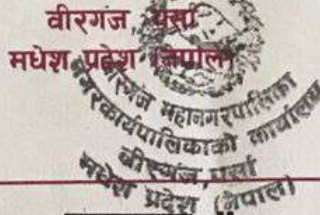 वीरगंज, पर्सा
मधेश प्रदेश (नेपाल)
वीरगंज महानगरपालिका
नगरकार्यपालिकाको कार्यालय
वीरगंज, पर्सा
मधेश प्रदेश (नेपाल)